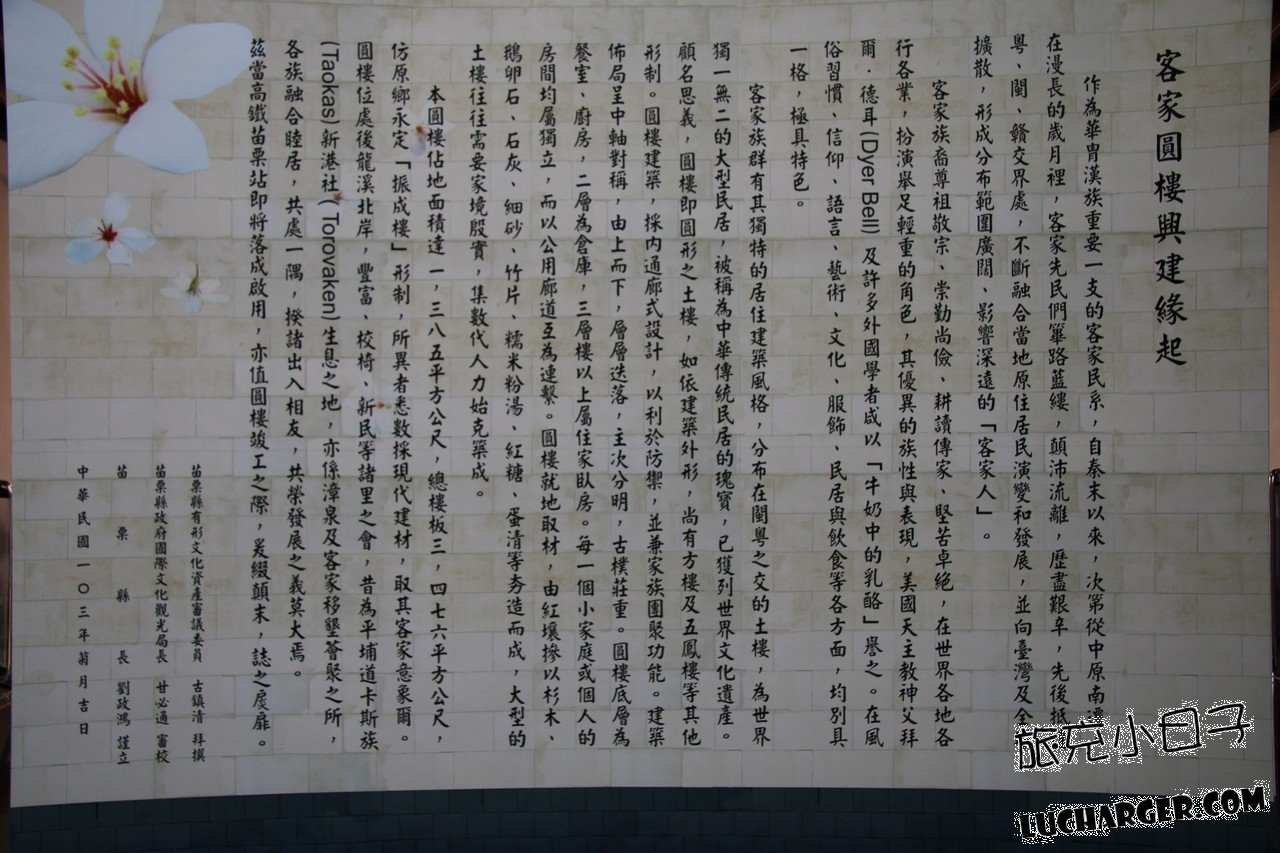 客家圓樓興建緣起
作為華胄漢族重要一支的客家民系，自秦末以來，次第從中原南遷
在漫長的歲月裡，客家先民們篳路藍縷，顛沛流離，歷盡艱辛，先後抵
粵、閩、贛交界處，不斷融合當地原住居民演變和發展，並向臺灣及全
擴散，形成分布範圍廣闊、影響深遠的「客家人」。
客家族裔尊祖敬宗、崇勤尚儉、耕讀傳家、堅苦卓絕，在世界各地各
行各業，扮演舉足輕重的角色，其優異的族性與表現，美國天主教神父拜
爾．德耳(Dyer Bell) 及許多外國學者咸以「牛奶中的乳酪」譽之。在風
俗習慣、信仰、語言、藝術、文化、服飾、民居與飲食等各方面，均別具
一格，極具特色。
客家族群有其獨特的居住建築風格，分布在閩粵之交的土樓，為世界
獨一無二的大型民居，被稱為中華傳統民居的瑰寶，已獲列世界文化遺產。
顧名思義，圓樓即圓形之土樓，如依建築外形，尚有方樓及五鳳樓等其他
形制。圓樓建築，採內通廊式設計，以利於防禦，並兼家族團聚功能。建築
佈局呈中軸對稱，由上而下，層層迭落，主次分明，古樸莊重。圓樓底層為
餐室、廚房，二層為倉庫，三層樓以上屬住家臥房。每一個小家庭或個人的
房間均屬獨立，而以公用廊道互為連繫。圓樓就地取材，由紅壤摻以杉木、
鵝卵石、石灰、細砂、竹片、糯米粉湯、紅糖、蛋清等夯造而成，大型的
土樓往往需要家境殷實，集數代人力始克築成。
本圓樓佔地面積達一，三八五平方公尺，總樓板三，四七六平方公尺，
仿原鄉永定「振成樓」形制，所異者悉數採現代建材，取其客家意象爾。
圓樓位處後龍溪北岸，豐富、校椅、新民等諸里之會，昔為平埔道卡斯族
(Taokas) 新港社( Torovaken) 生息之地，亦係漳泉及客家移墾薈聚之所，
各族融合睦居，共處一隅，揆諸出入相友，共榮發展之義莫大焉。
茲當高鐵苗栗站即將落成啟用，亦值圓樓竣工之際，爰綴顛末，誌之扆扉。
苗栗縣有形文化資產審議委員 古鎮清 拜撰
苗栗縣政府國際文化觀光局長 甘必通 審校
苗栗縣長 劉政鴻 謹立
中華民國一〇三年菊月吉日
旅充小日子
LUCHARGER.COM